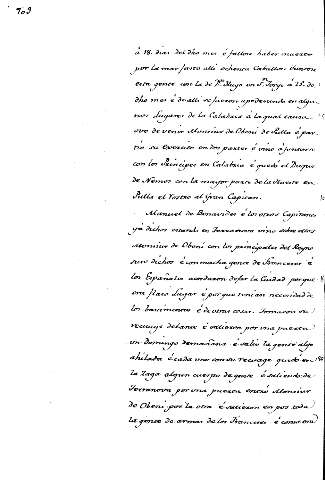 à 18. dias del dho mes é fallose haber muerto
por la mar fasta alli ochenta Caballos. Juntose
esta gente con la de Dn. Hugo en Sn. Jorge à 25. de
dho mes é de alli se fueron apoderando en algu-
nos lugares de la Calabria à la qual causa
ovo de venir Monsiur de Obeni de Pulla é par-
tio su Exercito en dos partes é vino à juntarse
con los Principes en Calabria é quedó el Duque
de Nemos con la mayor parte de la Hueste en
Pulla el rostro al Gran Capitan.
Manuel de Benavides é los otros Capitanes
yá dichos estando en Terranova vino sobre ellos
Monsiur de Obeni con los principales del Reyno
suso dichos é con mucha gente de Franceses é
los Españoles acordaron dejar la Ciudad porque
era flaco Lugar é porque tenian necesidad de
los bastimentos é de otras cosas. Tomaron su
recuage delante é salieron por una puerta
un domingo de mañana é salió la gente algo
ahilada é cada uno con su recuage quedó en
la zaga algun cuerpo de gente é saliendo de
Terranova por una puerta entró Monsiur
de Obeni por la otra é salieron en pos toda
la gente de armas de los Franceses é como en